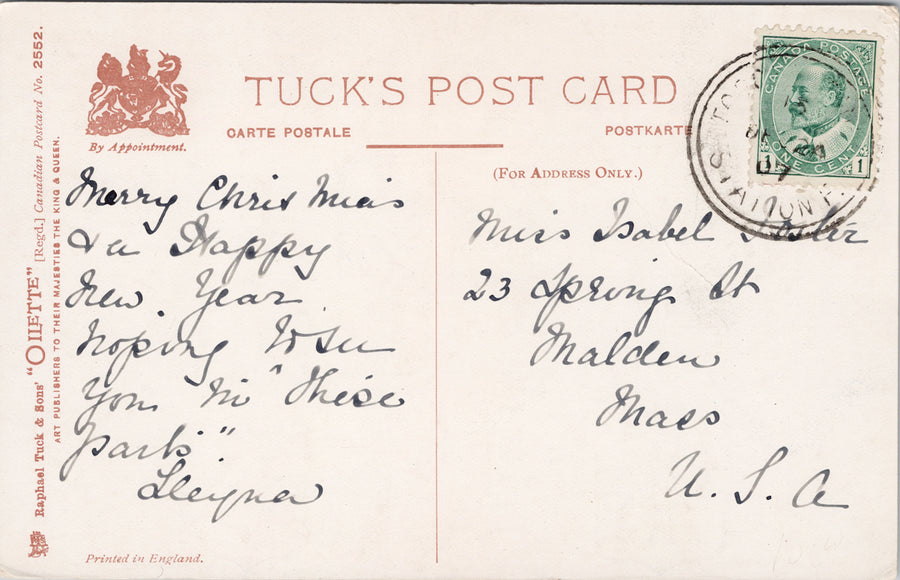 TUCK'S POST CARD
CARTE POSTALE
POSTKARTE
By Appointment.
(FOR ADDRESS ONLY.)
Raphael Tuck & Sons' "OILETTE" [Regd.] Canadian Postcard No. 2552.
ART PUBLISHERS TO THEIR MAJESTIES THE KING & QUEEN.
Merry Chris Mas
& a Happy
New Year
Hoping to see
you "in These
parts"
Miss Isabel
23 Spring St
Malden
Mass
U. S. A
CANADA POSTAGE
1 ONE CENT 1
STATION
Printed in England.